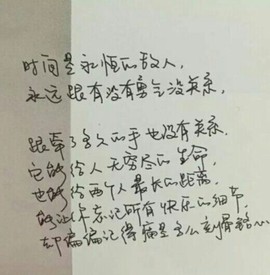 时间是永恒的敌人，
永远跟有没有勇气没关系，
跟牵了多久的手也没有关系。
它能给人无穷尽的生命，
也能给两个人最长的距离，
能让你忘记所有快乐的细节，
却偏偏记得痛是怎么刻骨铭心